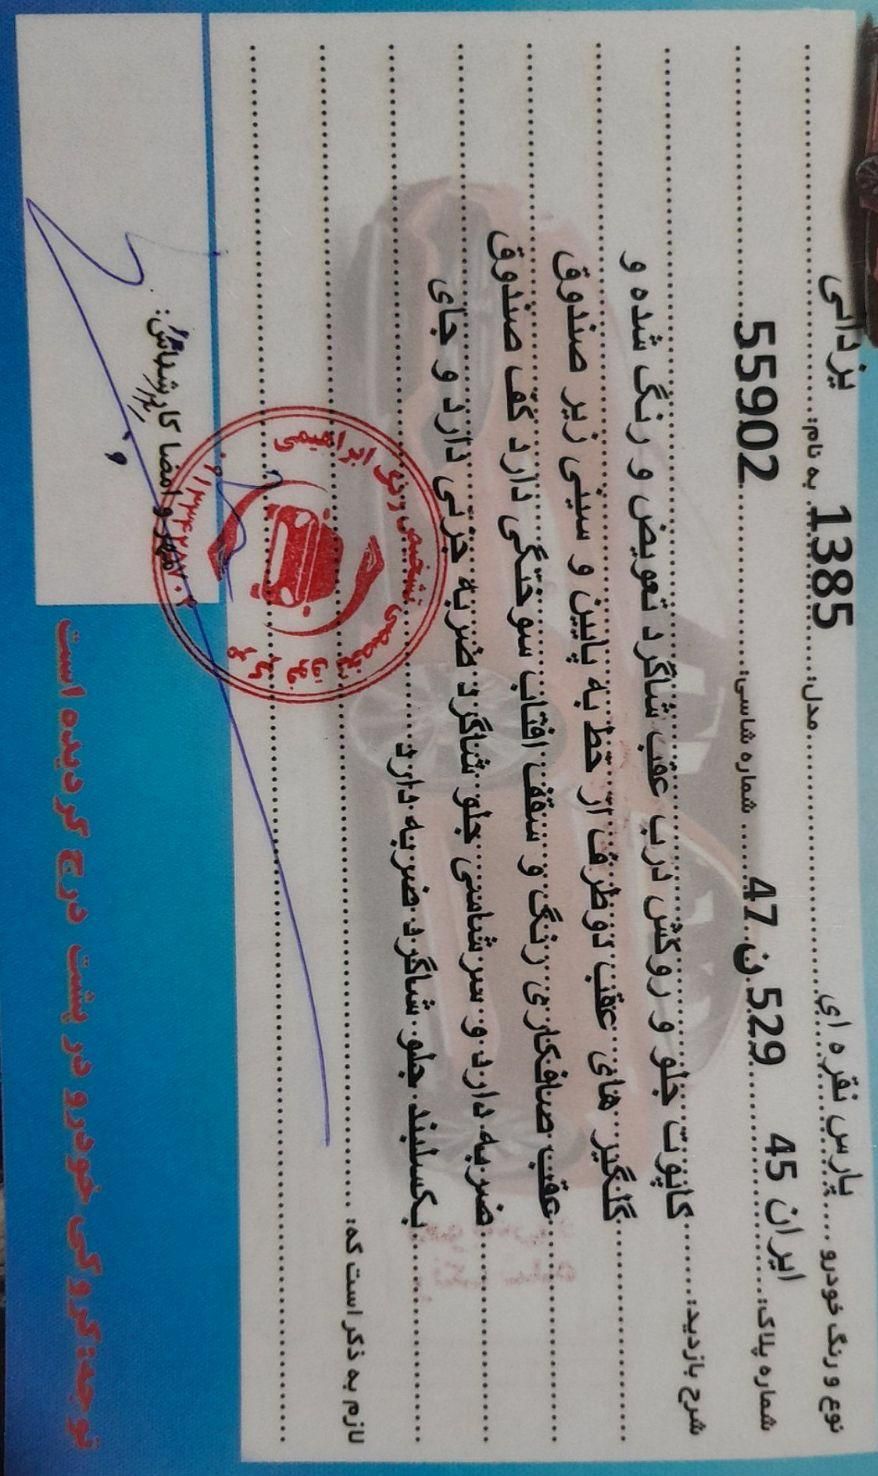 نوع و رنگ خودرو: پارس نقره ای مدل: 1385 به نام: یزدانی
شماره پلاک: ایران 45 529 ن 47 شماره شاسی: 55902
شرح بازدید: کاپوت جلو و روکش درب عقب شاگرد تعویض و رنگ شده و
گلگیر های عقب دو طرف از خط به پایین و سینی زیر صندوق
عقب صافکاری رنگ و سقف افتاب سوختگی دارد کف صندوق
ضربه دارد و سرشاسی جلو شاگرد ضربه جزئی دارد و جای
بکسلبند جلو شاگرد ضربه دارد
لازم به ذکر است که:
مهر و امضا کارشناس:
توجه: کروکی خودرو در پشت درج گردیده است